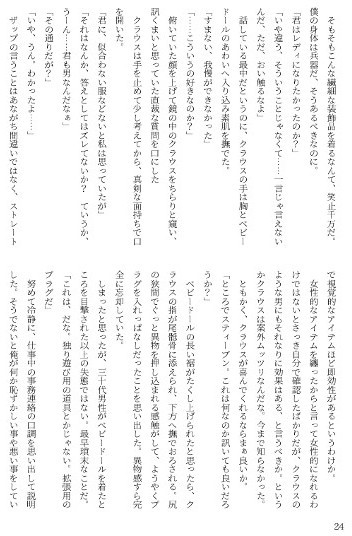 そもそもこんな繊細な装飾品を着るなんて、笑止千万だ。
僕の身体は兵器だ、そうあるべきなのに。
「君はレディになりたかったのかね?」
「いや違う、そういうことじゃなくて……一言じゃ言えない
んだ、ただ、おい触るなよ」
話している最中だというのに、クラウスの手は胸とベビー
ドールのあわいへ入り込み素肌を撫でた。
「すまない、我慢ができなかった」
「……こういうの好きなのか?」
俯いていた顔を上げて鏡の中のクラウスをちらりと窺い、
訊くまいと思っていた直裁な質問を口にした
クラウスは手を止めて少し考えてから、真剣な面持ちで口
を開いた。
「君に、似合わない服などないと私は思っていたが」
「それはなんか、答えとしてはズレてないか? ていうか、
うーん……君も男なんだなぁ」
「その通りだが?」
「いや、うん、わかったよ……」
ザップの言うことはあながち間違いではなく、ストレート
で視覚的なアイテムほど即効性があるというわけか。
女性的なアイテムを纏ったからと言って女性的になるわ
けではないとさっき自分で確認したばかりだが、クラウスの
ような男にもそれなりに効果はある、と言うべきか。という
かクラウスは案外ムッツリなんだな、今まで知らなかった。
ともかく、クラウスが喜んでくれるならまぁ良いか。
「ところでスティーブン。これは何なのか訊いても良いだろ
うか?」
ベビードールの長い裾がたくし上げられたと思ったら、ク
ラウスの指が尾骶骨に添えられ、下方へ撫でおろされる。尻
の狭間でぐっと異物を押し込まれる感触がして、ようやくプ
ラグを入れっぱなしだったことを思い出した。異物感すら完
全に忘却していた。
しまったと思ったが、三十代男性がベビードールを着たと
ころを目撃された以上の失態ではない。最早瑣末なことだ。
「これは、だな、独り遊び用の道具とかじゃない。拡張用の
プラグだ」
努めて冷静に、仕事中の事務連絡の口調を思い出して説明
した。そうでないと俺が何か恥ずかしい事や悪い事をしてい
24